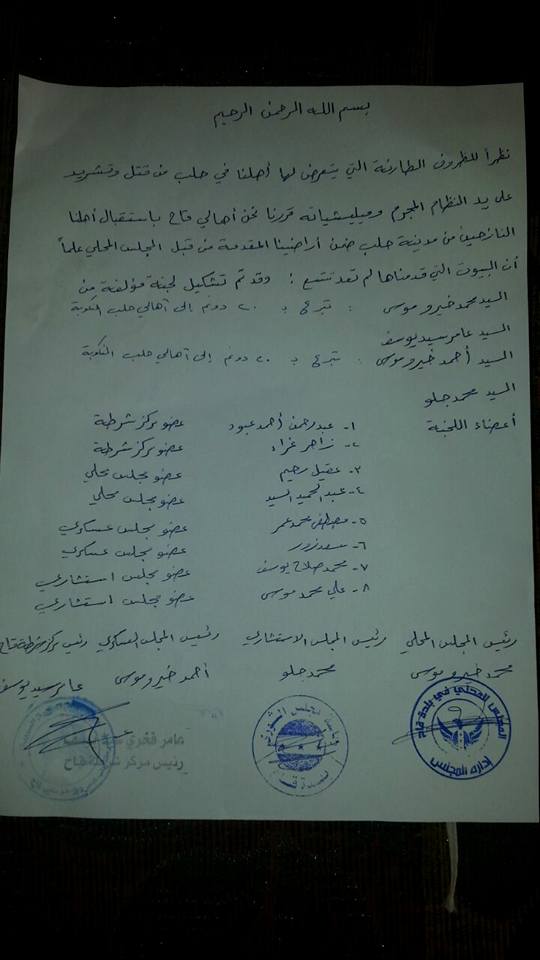 بسم الله الرحمن الرحيم
نظراً للظروف الطارئة التي يتعرض لها أهلنا في حلب من قتل وتشريد
على يد النظام المجرم وميليشياته قررنا نحن أهالي قاح باستقبال أهلنا
النازحين من مدينة حلب ضمن أراضينا المقدمة من قبل المجلس المحلي علماً
أن البيوت التي قدمناها لم تعد تتسع : وقد تم تشكيل لجنة مؤلفة من
السيد محمد خيرو موسى : تبرع بـ ٢٠ دونم إلى أهالي حلب المنكوبة
السيد عامر سيد يوسف
السيد أحمد خيرو موسى : تبرع بـ ٢٠ دونم إلى أهالي حلب المنكوبة
السيد محمد جلو
أعضاء اللجنة
١- عبدرحمن أحمد عبود عضو مركز شرطة
٢- زاهر غزاء عضو مركز شرطة
٣- عقيل رحيم عضو مجلس محلي
٤- عبد الحميد السيد عضو مجلس محلي
٥- مصطفى محمد عمر عضو مجلس عسكري
٦- سعد عضو مجلس عسكري
٧- محمد صلاح يوسف عضو مجلس استشاري
٨- علي محمد موسى عضو مجلس استشاري
رئيس المجلس المحلي رئيس المجلس الاستشاري رئيس المجلس العسكري رئيس مركز شرطة قاح
محمد خيرو موسى محمد جلو أحمد خيرو موسى عامر سيد يوسف
المجلس المحلي في بلدة قاح
إدارة المجلس
مجلس الشورى
عامر فخري
رئيس مركز شرطة قاح